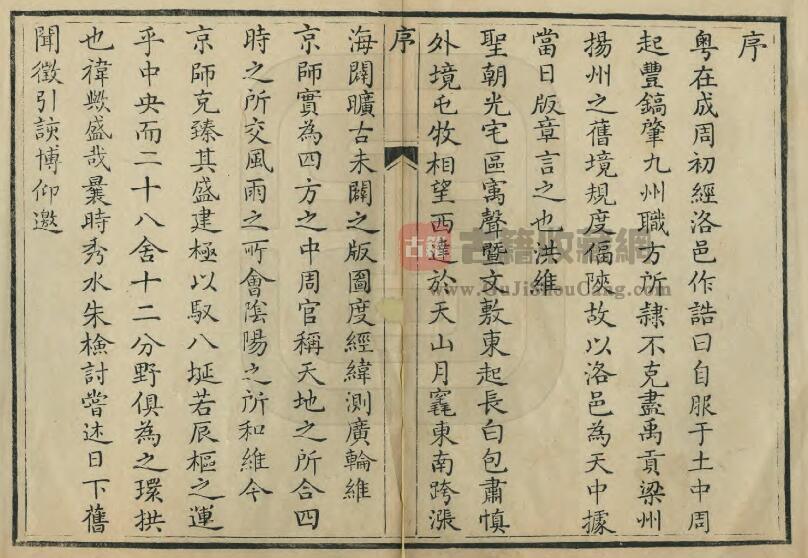 序
粤在成周初經洛邑作誥曰自服于土中周
起豐鎬肇九州職方所隷不克盡禹貢梁州
揚州之舊境規度偪陿故以洛邑為天中據
當日版章言之也洪維
聖朝光宅區寓聲暨文敷東起長白包肅慎
外境屯牧相望西達於天山月竁東南跨漲
序
海闢曠古未闢之版圖度經緯測廣輪維
京師實為四方之中周官稱天地之所合四
時之所交風雨之所會陰陽之所和維今
京師克臻其盛建極以馭八埏若辰樞之運
乎中央而二十八舍十二分野俱為之環拱
也禕歟盛哉曩時秀水朱檢討嘗述日下舊
聞徵引該博仰邀
古籍
古籍收藏網
www.GuJiShouCang.com